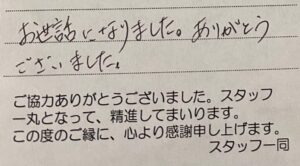 お世話になりました。ありがとう
ございました。
ご協力ありがとうございました。スタッフ
一丸となって、精進してまいります。
この度のご縁に、心より感謝申し上げます。
スタッフ一同